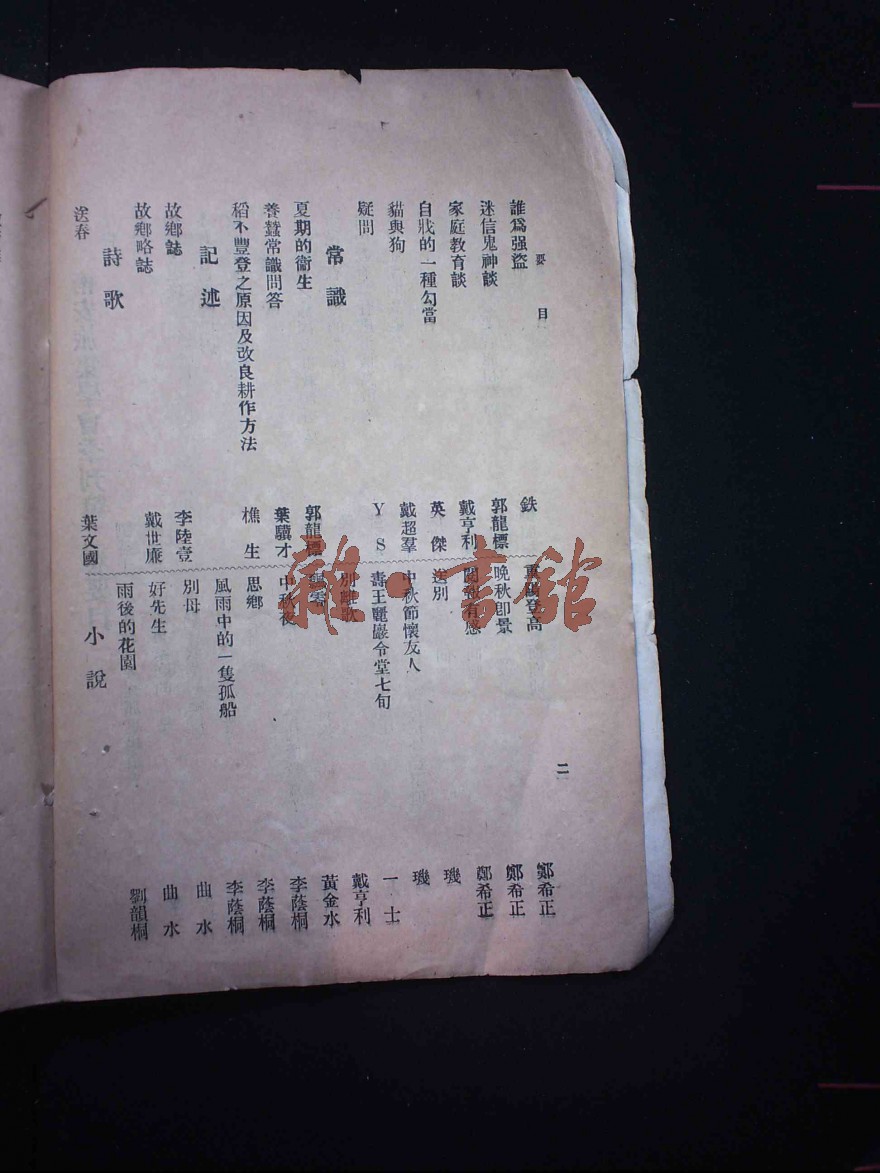 要目 二
誰爲强盜 鉄
迷信鬼神談 郭龍標
家庭教育談 戴亨利
自戕的一種勾當 英傑
貓與狗 戴超羣
疑問 Y S
常識
夏期的衞生 郭龍標
養蠶常識問答 葉驥才
稻不豐登之原因及改良耕作方法 樵生
記述
故鄉誌 李陸壹
故鄉略誌 戴世廉
詩歌
送春 葉文國
重陽登高 鄭希正
晚秋卽景 鄭希正
閱報有感 鄭希正
送別 璣
中秋節懷友人 璣
壽王麗巖令堂七旬 一士
別離歌 戴亨利
零 黃金水
中秋夜 李蔭桐
思鄉 李蔭桐
風雨中的一隻孤船 李蔭桐
別母 曲水
好先生 曲水
雨後的花園 劉韻桐
小說
雜·書舘